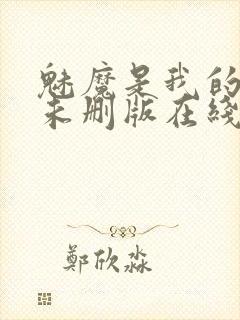 魅魔是我的
未删版在綫
鄭欣淼